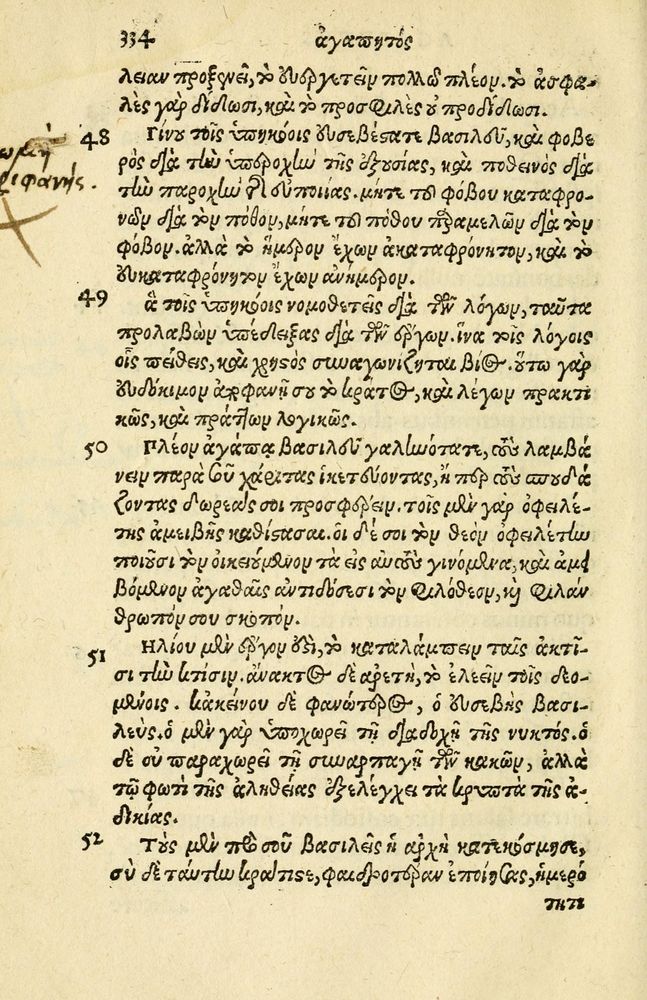 334 ἀγαπητός
λειαν προξενεῖ, τὸ εὐεργετεῖν πολλῷ πλέον. τὸ ἀσφα-
λὲς γὰρ δίδωσι, καὶ τὸ προσφιλὲς οὐ προδίδωσι.
48 Γίνου τοῖς ὑπηκόοις εὐσεβέστατε βασιλεῦ, καὶ φοβε
ρὸς διὰ τὴν ὑπεροχὴν τῆς ἐξουσίας, καὶ ποθεινὸς διὰ
τὴν παροχὴν τῆς εὐποιίας. μήτε τοῦ φόβου καταφρο-
νῶν διὰ τὸν πόθον, μήτε τοῦ πόθου παραμελῶν διὰ τὸν
φόβον. ἀλλὰ τὸ ἥμερον ἔχων ἀκαταφρόνητον, καὶ τὸ
εὐκαταφρόνητον ἔχων ἀνήμερον.
49 ἃ τοῖς ὑπηκόοις νομοθετεῖς διὰ τῶν λόγων, ταῦτα
προλαβὼν ὑπέδειξας διὰ τῶν ἔργων. ἵνα τοῖς λόγοις
οἷς πείθεις, καὶ χρηστὸς συναγωνίζηται βίος. οὕτω γὰρ
εὐδόκιμον ἀποφανῇ σου τὸ κράτος, καὶ λέγων πρακτι
κῶς, καὶ πράττων λογικῶς.
50 Πλέον ἀγάπα βασιλεῦ γαληνότατε, τοὺς λαμβά
νειν παρὰ σοῦ χάριτας ἱκετεύοντας, ἤπερ τοὺς σπουδά
ζοντας δωρεάς σοι προσφέρειν. τοῖς μὲν γὰρ ὀφειλέ-
της ἀμειβῆς καθίστασαι. οἱ δέ σοι τὸν θεὸν ὀφειλέτην
ποιοῦσι τὸν οἰκειούμενον τὰ εἰς αὐτοὺς γινόμενα, καὶ ἀμει
βόμενον ἀγαθαῖς ἀντιδόσεσι τὸν φιλόθεον, καὶ φιλάν
θρωπόν σου σκοπόν.
51 Ἡλίου μὲν ἔργον ἐστὶ, τὸ καταλάμπειν ταῖς ἀκτῖ-
σι τὴν κτίσιν. ἄνακτος δὲ ἀρετὴ, τὸ ἐλεεῖν τοῖς δεο-
μένοις. κἀκείνου δὲ φανώτερος, ὁ εὐσεβὴς βασι-
λεύς. ὁ μὲν γὰρ ὑποχωρεῖ τῇ διαδοχῇ τῆς νυκτός. ὁ
δὲ οὐ παραχωρεῖ τῇ συναρπαγῇ τῶν κακῶν, ἀλλὰ
τῷ φωτὶ τῆς ἀληθείας ἐξελέγχει τὰ κρυπτὰ τῆς ἀ-
δικίας.
52 Τοὺς μὲν πρὸ σοῦ βασιλεῖς ἡ ἀρχὴ κατεκόσμησε,
σὺ δὲ ταύτην κράτιστε, φαιδροτέραν ἐποίησας, ἡμερό
τητι